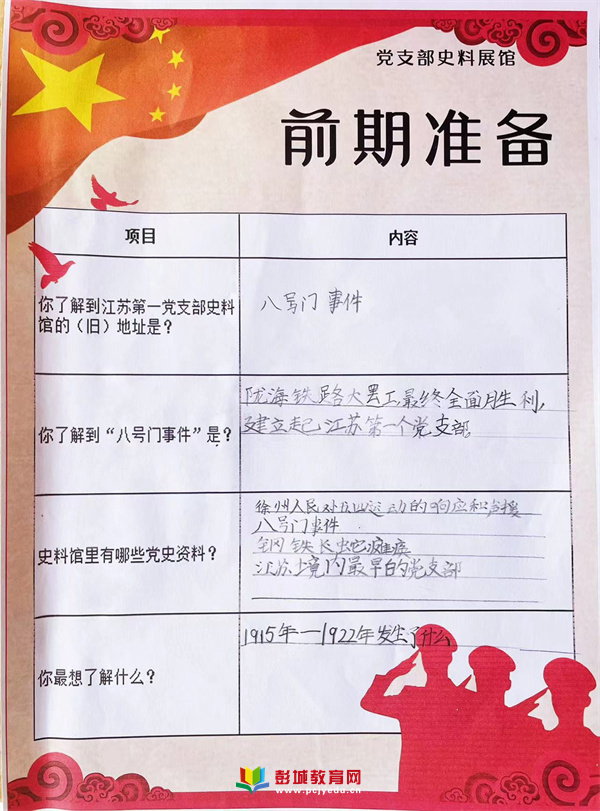 党支部史料展馆
前期准备
项目
内容
你了解到江苏第一党支部史料
馆的（旧）地址是？
八号门事件
你了解到“八号门事件”是？
陇海铁路大罢工最终全面胜利，
建立起江苏第一个党支部。
史料馆里有哪些党史资料？
徐州人民对五四运动的响应和声援
八号门事件
钢铁长蛇瘫痪
江苏境内最早的党支部
你最想了解什么？
1915年—1922年发生了什么
彭城教育网
www.pcjyedu.cn